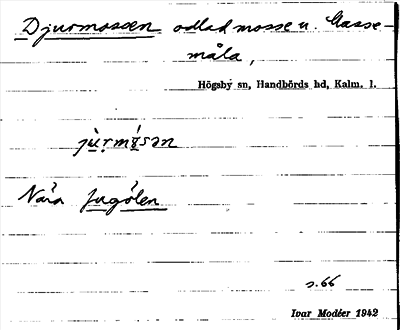 Djurmossen odlad mosse u. Gasse-
måla,
Högsby sn, Handbörds hd, Kalm. l.
jù̱rmó̱sən
Nära Jugölen
s. 66
Ivar Modéer 1942